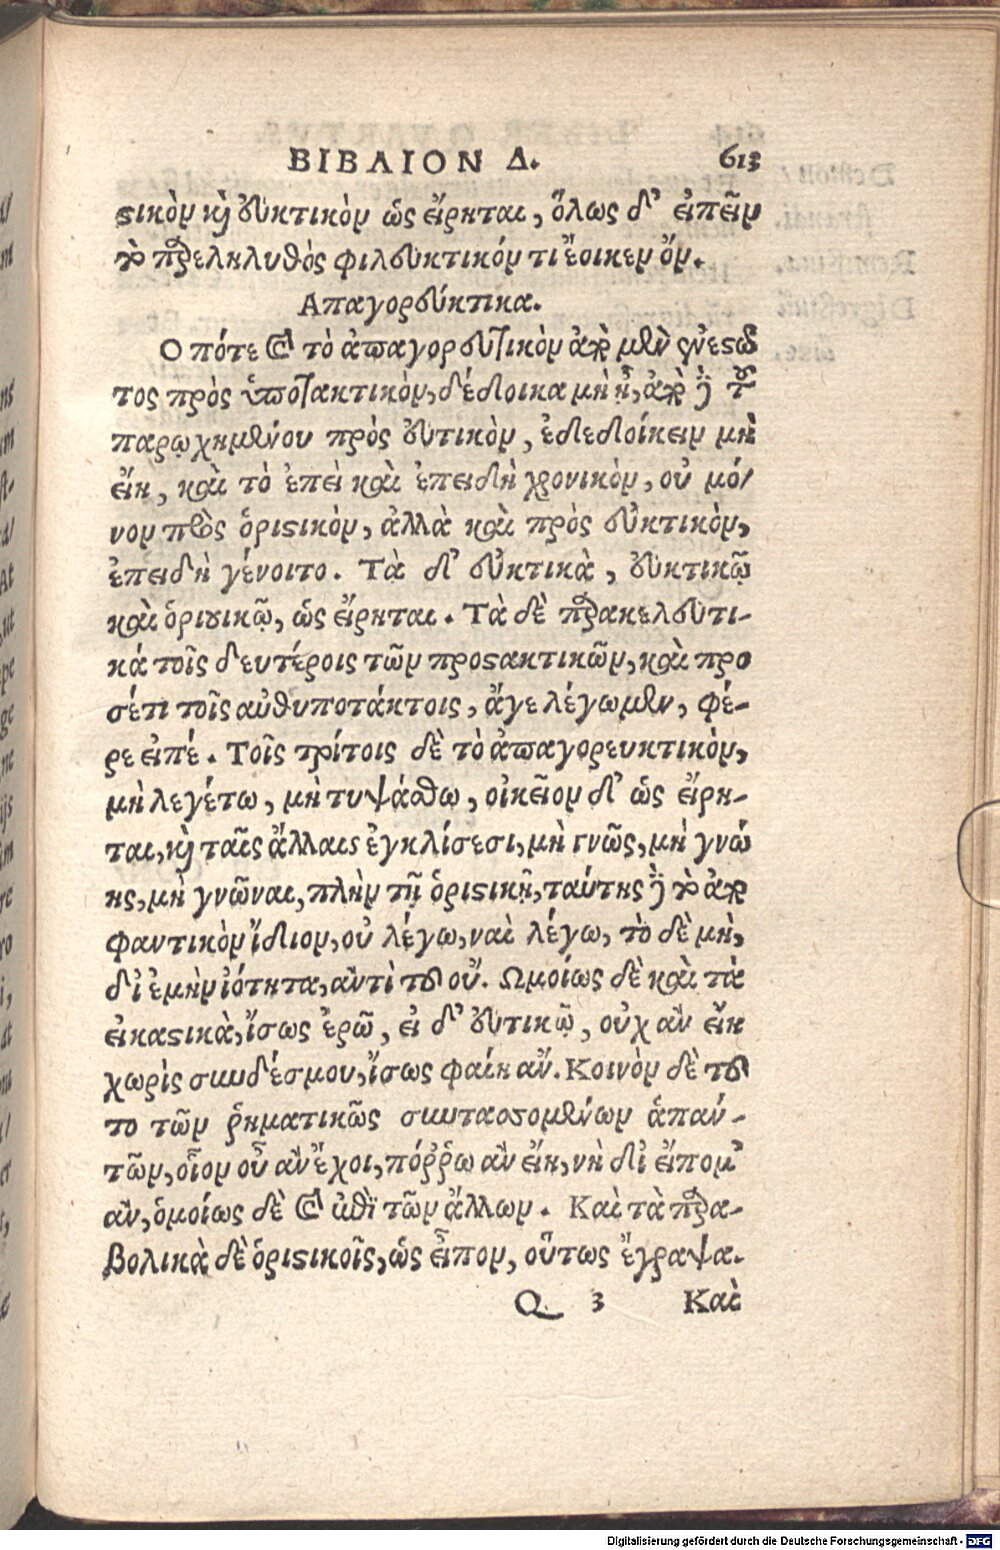 ΒΙΒΛΙΟΝ Δ. 613
ϛικὸν καὶ εὐκτικὸν ὡς εἴρηται, ὅλως δ' εἰπεῖν
τὸ παρεληλυθὸς φιλευκτικόν τι ἔοικεν ὄν.
Απαγορεύκτικα.
Οπότε καὶ τὸ ἀπαγορευτικὸν ἀπὸ μὲν ἐνεϛῶ
τος πρὸς ὑποτακτικὸν, δέδοικα μὴ ᾖ, ἀπὸ δὲ τοῦ
παρῳχημένου πρὸς εὐτικὸν, ἐδεδοίκειν μὴ
εἴη, καὶ τὸ ἐπεὶ καὶ ἐπειδὴ χρονικὸν, οὐ μό/
νον πρὸς ὁριϛικὸν, ἀλλὰ καὶ πρὸς εὐκτικὸν,
ἐπειδὴ γένοιτο. Τὰ δ' εὐκτικὰ, εὐκτικῷ
καὶ ὁριϛικῷ, ὡς εἴρηται. Τὰ δὲ παρακελευτι-
κά τοῖς δευτέροις τῶν προϛακτικῶν, καὶ προ
σέτι τοῖς αὐθυποτάκτοις, ἄγε λέγωμεν, φέ-
ρε εἰπέ. Τοῖς τρίτοις δὲ τὸ ἀπαγορευκτικὸν,
μὴ λεγέτω, μὴ τυψάσθω, οἰκεῖον δ' ὡς εἴρη-
ται, καὶ ταῖς ἄλλαις ἐγκλίσεσι, μὴ γνῶς, μὴ γνώ
ης, μὴ γνῶναι, πλὴν τῇ ὁριϛικῇ, ταύτης δὲ τὸ ἀπο
φαντικὸν ἴδιον, οὐ λέγω, ναὶ λέγω, τὸ δὲ μὴ,
δι ἐμὴν ἰότητα, ἀντὶ τοῦ οὔ. Ωμοίως δὲ καὶ τὰ
εἰκαϛικὰ, ἴσως ἐρῶ, εἰ δ' εὐτικῷ, οὐχ ἂν εἴη
χωρὶς συνδέσμου, ἴσως φαίην ἄν. Κοινὸν δὲ τοῦ
το τῶν ῥηματικῶς συντασσομένων ἁπάν-
των, οἷον οὗ ἂν ἔχοι, πόῤῥω ἂν εἴη, νὴ δι εἴποιμ'
ἂν, ὁμοίως δὲ καὶ ἐπὶ τῶν ἄλλων. Καὶ τὰ παρα-
βολικὰ δὲ ὁριϛικοῖς, ὡς εἶπον, οὕτως ἔγραψα.
Q 3 Καὶ
Digitalisierung gefördert durch die Deutsche Forschungsgemeinschaft - DFG